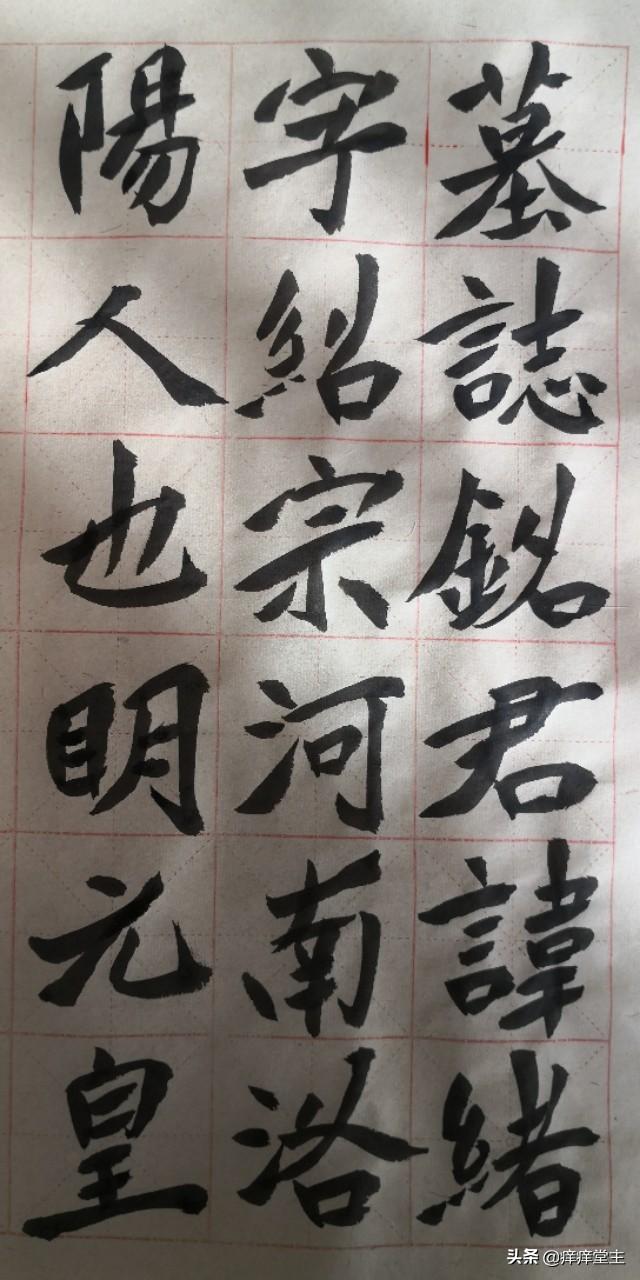 墓誌銘君諱緒
字紹宗河南洛
陽人也明元皇
头条 @痒痒堂主